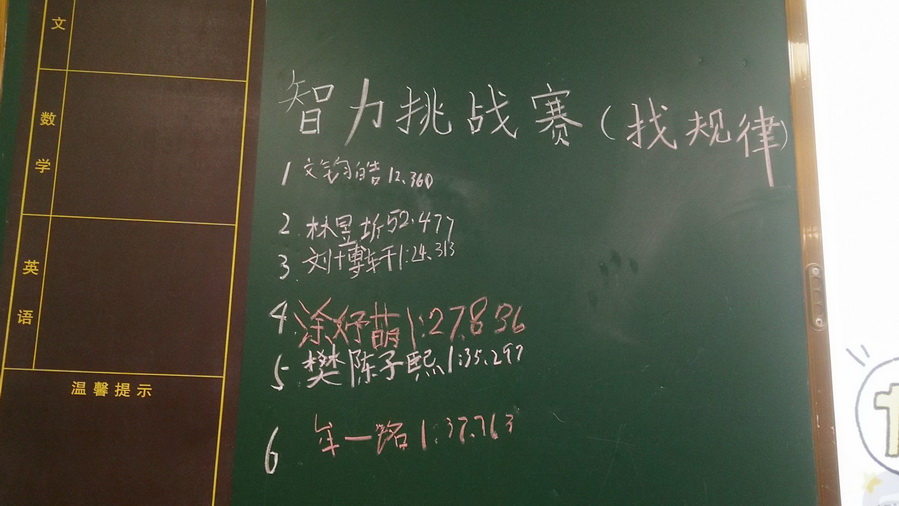 文
数
学
英
语
温馨提示
智力挑战赛(找规律)
1 文钧皓12.360
2. 林昱圻52.477
3. 刘博轩1:24.313
4. 涂妤萌1:27.836
5 樊陈子熙1:35.297
6 牟一路1:37.763